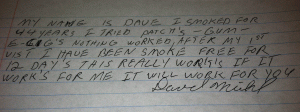 MY NAME IS DAVE I SMOKED FOR
44 YEARS I TRIED PATCH'S - GUM -
E-CIG'S NOTHING WORKED, AFTER MY 1ST
VIST I HAVE BEEN SMOKE FREE FOR
12 DAY'S THIS REALLY WORK'S IF IT
WORK'S FOR ME IT WILL WORK FOR YOU
Dave